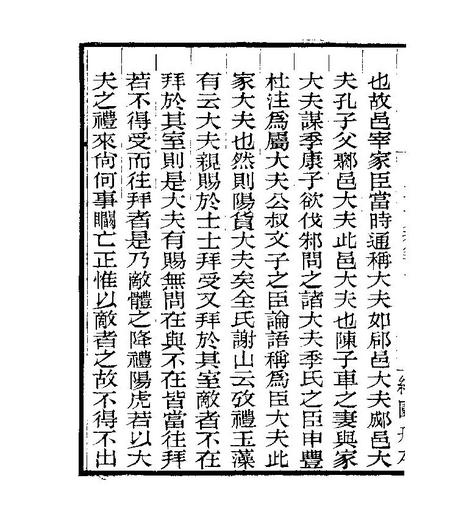 也故邑宰家臣當時通稱大夫如郈邑大夫郕邑大
夫孔子父鄹邑大夫此邑大夫也陳子車之妻與家
大夫謀季康子欲伐邾問之諸大夫季氏之臣申豐
杜注爲屬大夫公叔文子之臣論語稱爲臣大夫此
家大夫也然則陽貨大夫矣全氏謝山云攷禮玉藻
有云大夫親賜於士士拜受又拜於其室敵者不在
拜於其室則是大夫有賜無問在與不在皆當往拜
若不得受而往拜者是乃敵體之降禮陽虎若以大
夫之禮來尙何事矙亡正惟以敵者之故不得不出